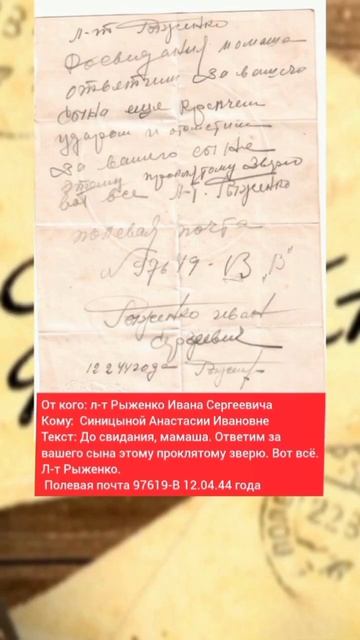 л-т Рыженко
Досвидания мамаша
ответим за вашего
сына еще крепчем
ударом и отомстим
за вашего сына
этому проклятому зверю
вот все Л-т. Рыженко
полевая почта
№ 97619-В "В"
Рыженко иван
Сергеевич
От кого: л-т Рыженко Ивана Сергеевича
Кому: Синицыной Анастасии Ивановне
Текст: До свидания, мамаша. Ответим за
вашего сына этому проклятому зверю. Вот всё.
Л-т Рыженко.
Полевая почта 97619-В 12.04.44 года